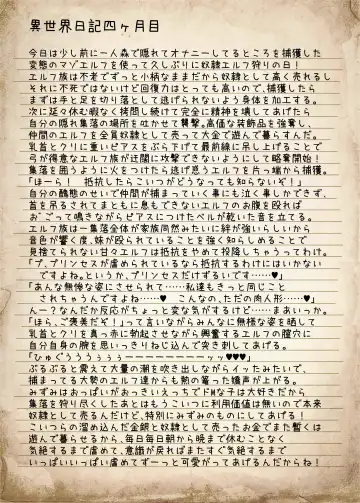 異世界日記四ヶ月目
今日は少し前に一人森で隠れてオナニーしてるところを捕獲した
変態のマゾエルフを使って久しぶりに奴隷エルフ狩りの日！
エルフ族は不老でずっと小柄なままだから奴隷として高く売れるし
それに不死ではないけど回復力はとっても高いので、捕獲したら
まずは手と足を切り落として逃げられないよう身体を加工する。
次に延々休む暇なく拷問し続けて完全に精神を壊してあげたら
自分の隠れ集落の場所を吐かせて襲撃。高価な装飾品を強奪し、
仲間のエルフを全員奴隷として売って大金で遊んで暮らすんだ。
乳首とクリに重いピアスをぶら下げて最前線に吊し上げることで
弓が得意なエルフ族が迂闊に攻撃できないようにして略奪開始！
集落を囲うように火をつけたら逃げ惑うエルフを片っ端から捕獲。
「ほーら！　抵抗したらこいつがどうなっても知らないぞ！」
自分の醜態のせいで仲間が捕まっていく事にも泣く事しかできず、
首を吊るされてまともに息もできないエルフのお腹を殴れば
おごって鳴きながらピアスにつけたベルが乾いた音を立てる。
エルフ族は一集落全体が家族同然みたいに絆が強いらしいから
音色が響く度、妹が殴られていることを強く知らしめることで
見捨てられない甘々エルフは抵抗をやめて投降しちゃうってわけ。
「プ、プリンセスが虐められているなら抵抗するわけにはいかない
ですよね。というか、プリンセスだけずるいです……♥」
「あんな無惨な姿にされらて……私達もきっと同じこと
されちゃうんですよね……♥　こんなの、ただの肉人形……♥」
んー？なんだか反応がちょっと変な気がするけど……まあいっか。
「ほら、ご褒美だぞ！」って言いながらみんなに無様な姿を晒して
乳首とクリを真っ赤に勃起させながら興奮するエルフの膣穴に
自分自身の腕を思いっきりねじ込んで突き刺してあげる。
「ひゅぐうううぅぅぅーーーーーーーーーッッ♥♥♥」
ぶるぶると震えて大量の潮を吹き出しながらイッたみたいで、
捕まってる大勢のエルフ達からも熱の篭った嬌声が上がる。
みずみはおっぱいがおっきいえっちでドMな子は大好きだから
集落を狩り尽くしたあとはもうこいつに利用価値は無いので本来
奴隷として売るんだけど、特別にみずみのものにしてあげる！
こいつらの溜め込んだ金銀と奴隷として売ったお金でまた暫くは
遊んで暮らせるから、毎日毎日朝から晩まで休むことなく
気絶するまで虐めて、意識が戻ればまたすぐ気絶するまで
いっぱいいっぱい虐めてずーっと可愛がってあげるんだからね！